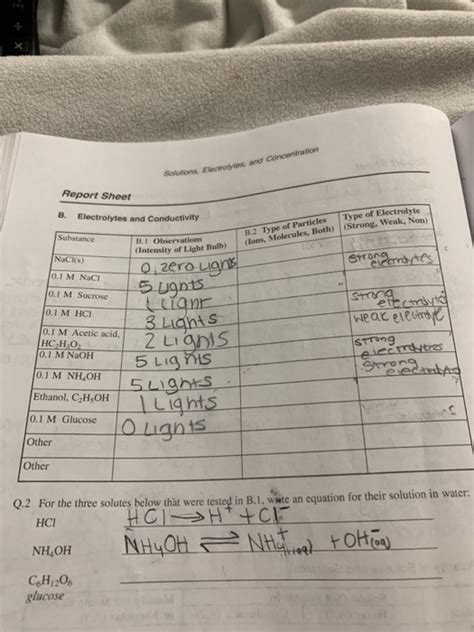 Solutions, Electrolytes, and Concentration
Report Sheet
B. Electrolytes and Conductivity
Substance B.1 Observations (Intensity of Light Bulb) B.2 Type of Particles (Ions, Molecules, Both) Type of Electrolyte (Strong, Weak, Non)
NaCl(s) 0, zero Lights Strong electrolytes
0.1 M NaCl 5 Lights
0.1 M Sucrose 1 Light Strong
0.1 M HCl 3 Lights weak
0.1 M Acetic acid, HC₂H₃O₂ 2 Lights Strong electrolytes
0.1 M NaOH 5 Lights Strong
0.1 M NH₄OH 5 Lights
Ethanol, C₂H₅OH 1 Lights
0.1 M Glucose 0 Lights
Other
Other
Q.2 For the three solutes below that were tested in B.1, write an equation for their solution in water:
HCl HCl → H⁺ + Cl⁻
NH₄OH NH₄OH ⇌ NH₄⁺(aq) + OH⁻(aq)
C₆H₁₂O₆
glucose